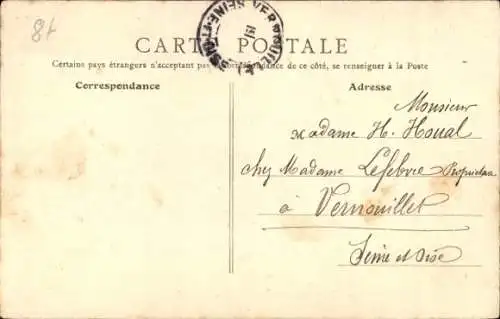 84
CARTE POSTALE
Certains pays étrangers n'acceptant pas la correspondance de ce côté, se renseigner à la Poste
Correspondance
Adresse
Monsieur
Madame H. Houal
chez Madame Lefebvre Propriétaire
à Vernouillet
Seine et Oise